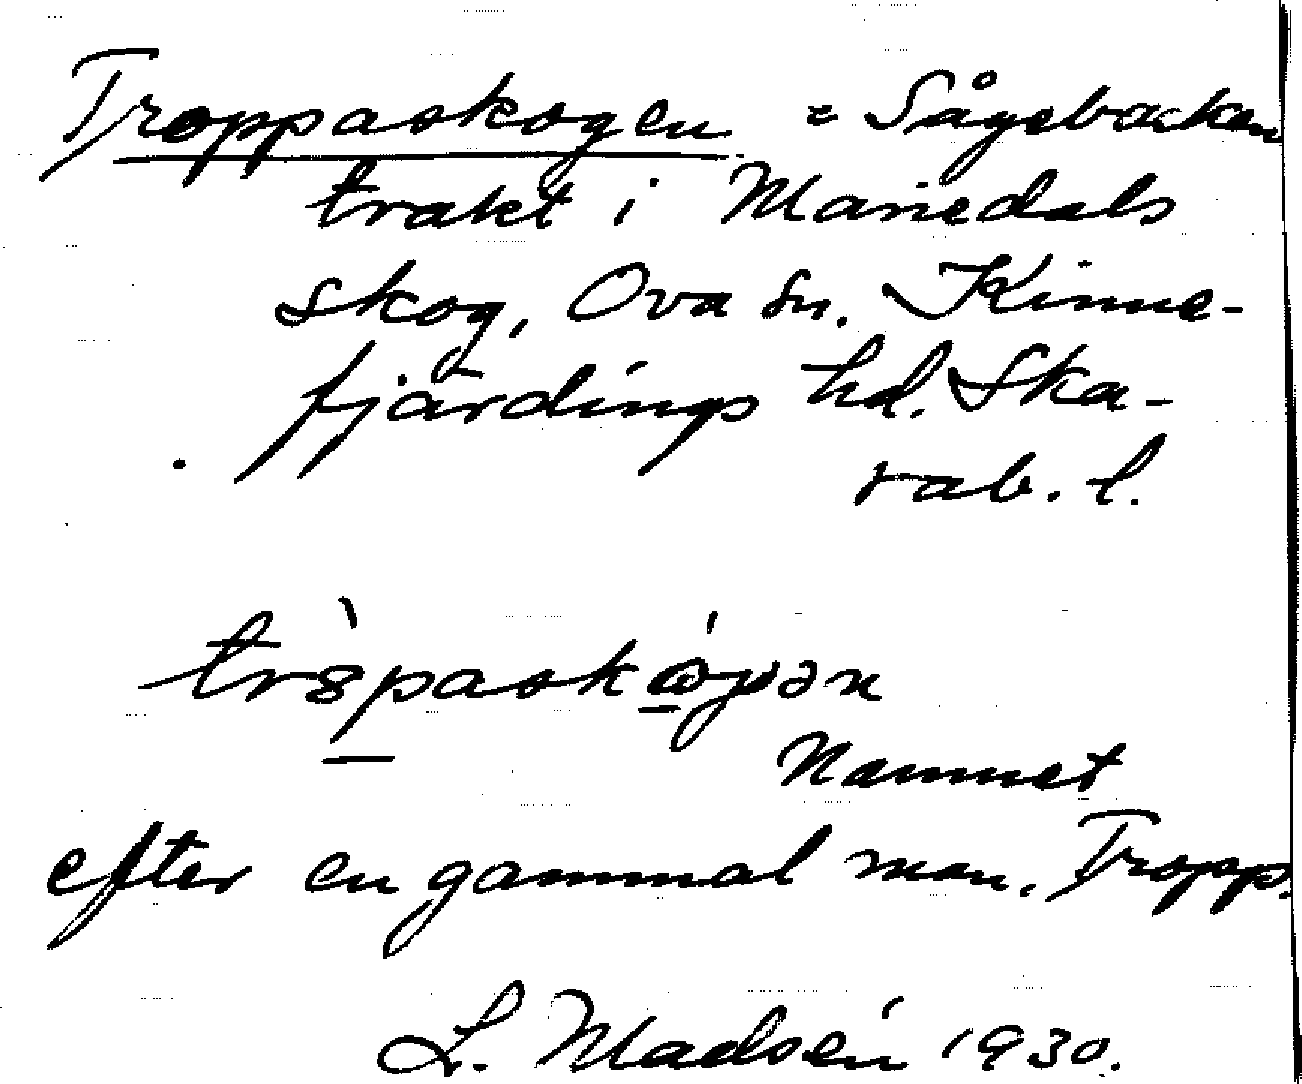 Troppaskogen = Sågebacken
trakt i Mariedals
skog, Ova sn. Kinne-
fjärdings hd. Ska-
rab. l.
Namnet
efter en gammal man. Tropp.
L. Madsén 1930.